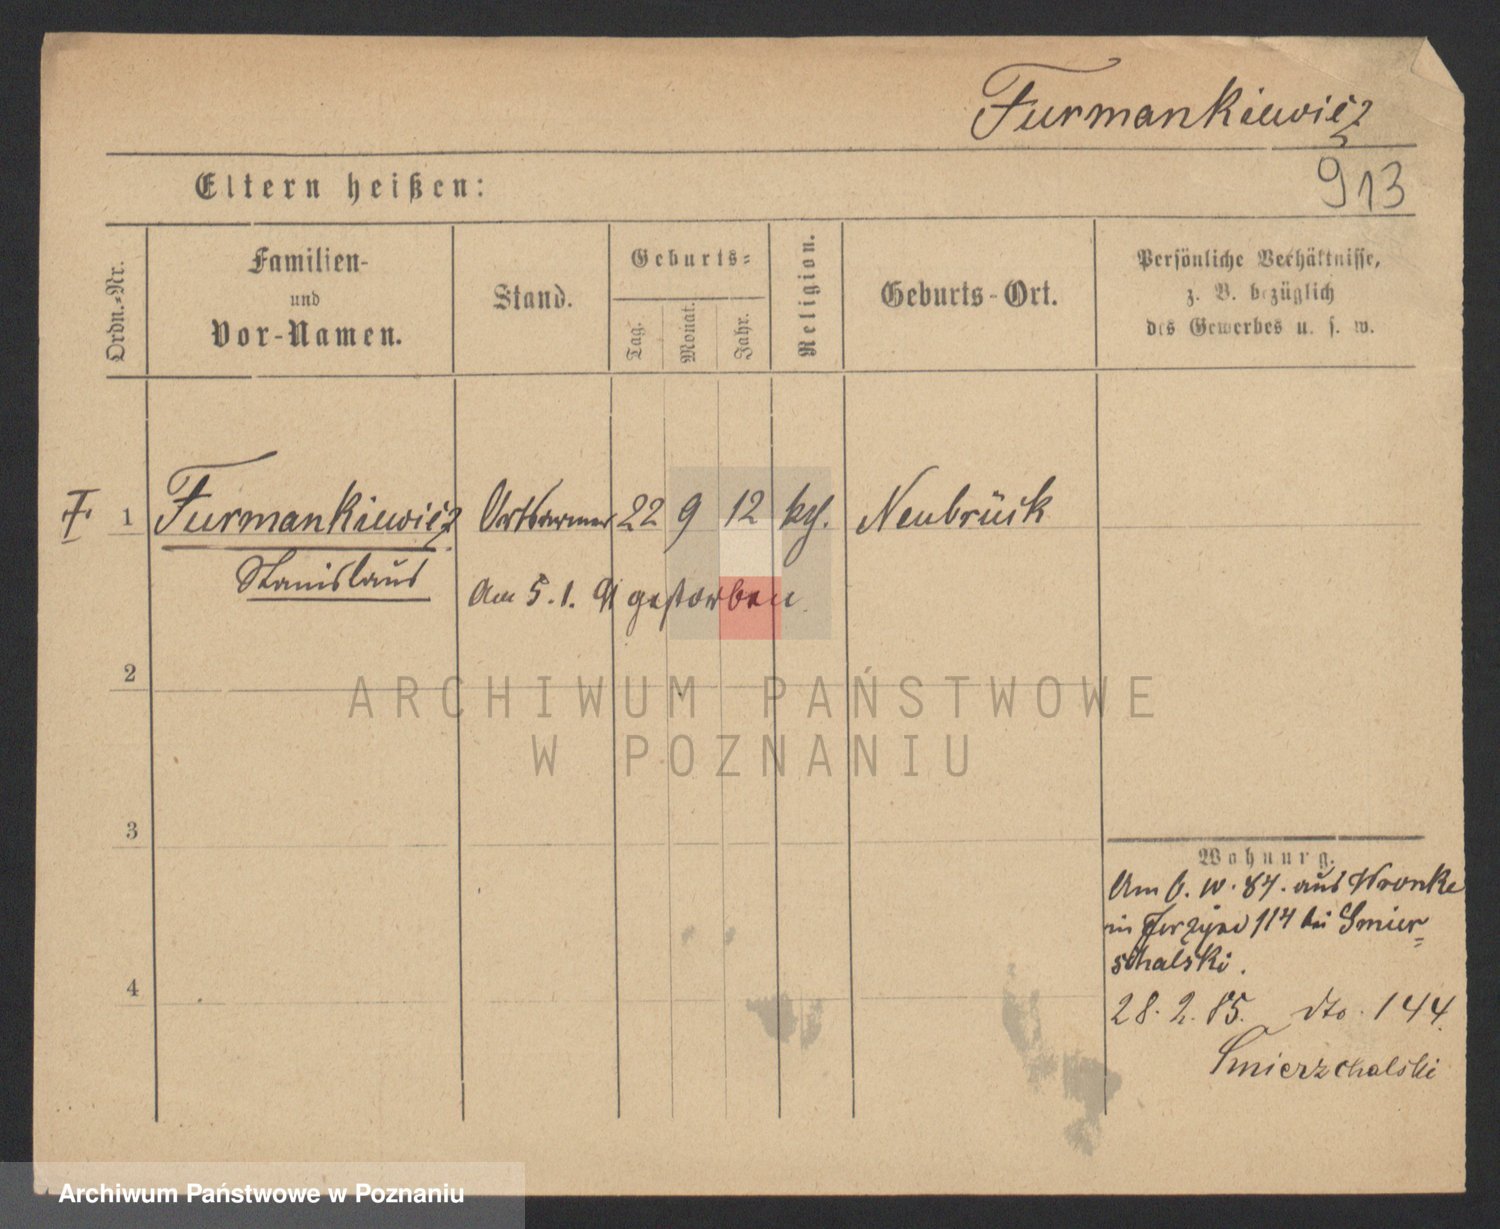 Furmankiewicz
913
Eltern heißen:
Ordn.-Nr.
Familien-
und
Vor-Namen.
Stand.
Geburts-
Tag.
Monat.
Jahr.
Religion.
Geburts-Ort.
Persönliche Verhältnisse,
z. B. bezüglich
des Gewerbes u. s. w.
1 Furmankiewicz Ortsarmer 22 9 12 kth. Neubrück
Stanislaus
Am 5. 1. 91 gestorben.
2
ARCHIWUM PAŃSTWOWE
W POZNANIU
3
Wohnung.
Am 6. 10. 84. aus Wronke
in 114 bei Smier=
schalski.
4
28. 2. 85. dto. 144.
Smierzchalski
Archiwum Państwowe w Poznaniu